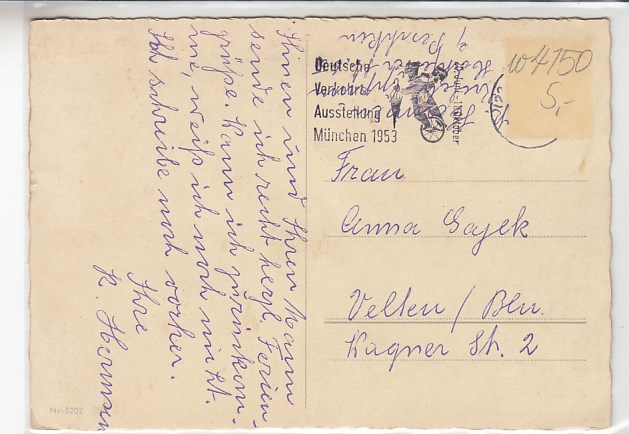 Ihnen und Ihrem Mann
sende ich recht herzl. Ferien-
grüße. Wann ich zurückkom-
me, weiß ich noch nicht.
Ich schreibe noch vorher.
Ihre
K. Hermsen
Deutsche
Verkehrs
Ausstellung
München 1953
W4150
5,-
Frau
Anna Gajek
Velten / Bln.
Wagner Str. 2
Nr. 5202